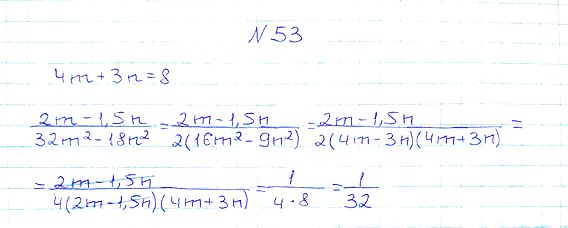 N 53
4m + 3n = 8
(2m - 1,5n)/(32m² - 18n²) = (2m - 1,5n)/(2(16m² - 9n²)) = (2m - 1,5n)/(2(4m - 3n)(4m + 3n)) =
= (2m - 1,5n)/(4(2m - 1,5n)(4m + 3n)) = 1/(4 · 8) = 1/32